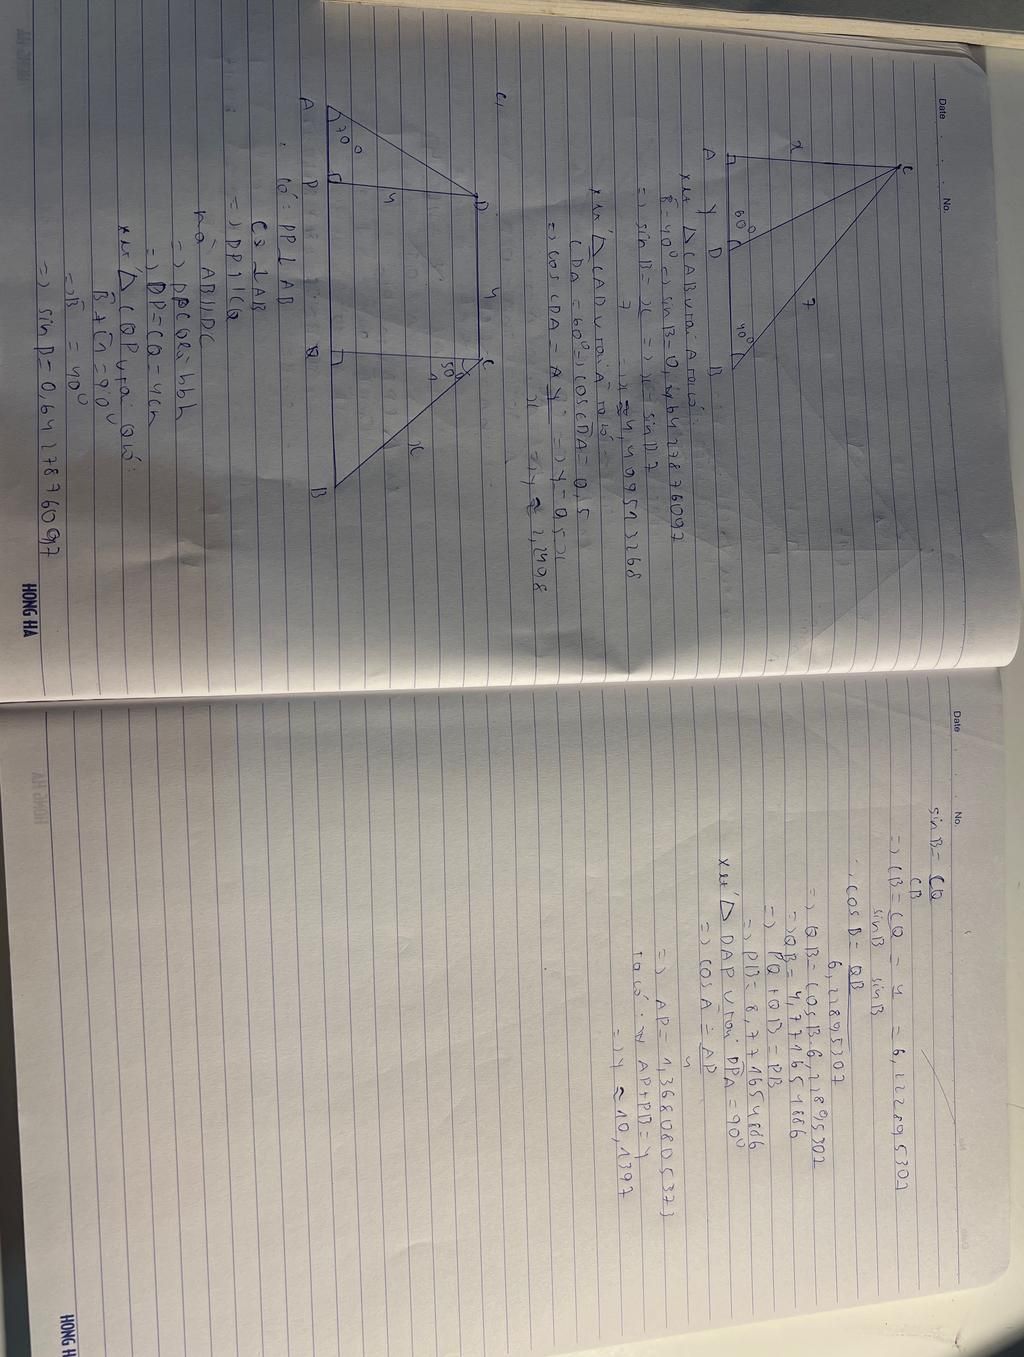 Date
No.
C
x
7
60°
40°
A
y
D
B
xét Δ CAB v tại A ta có:
B = 40° => sin B = 0,6427876097
=> sin B = x => x = sin B 7
7
=> x ≈ 4,499513268
xét Δ CAD v tại A ta có
CDA = 60° => cos CDA = 0,5
=> cos CDA = A y => y = 0,5 x
x
=> y ≈ 2,2498
c,
D
4
C
70°
4
50°
1
x
A
P
Q
B
Có: DP ⊥ AB
CQ ⊥ AB
=> DP // CQ
mà AB // DC
=> DPCQ là hbh
=> DP = CQ = 4cm
xét Δ CQB v tại Q có:
B + C1 = 90°
=> B = 40°
=> sin B = 0,6427876097
HONG HA
Date
No.
sin B = CQ
CB
=> CB = CQ = 4 = 6,222895307
sin B sin B
cos B = QB
6,222895307
=> QB = cos B. 6,222895307
=> QB = 4,771654886
=> PQ + QB = PB
=> PB = 8,771654886
xét Δ DAP v tại DPA = 90°
=> cos A = AP
4
=> AP = 1,368080573
ta có: AP + PB = y
=> y ≈ 10,1397
HONG H